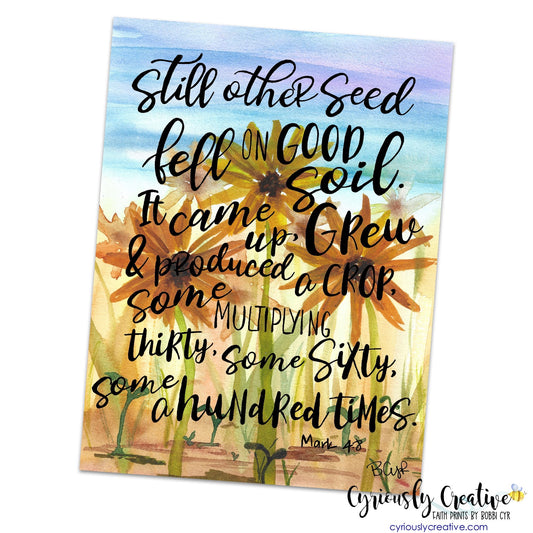 Still other seed
fell ON GOOD
soil.
It came
up, GREW
& PRODUCED a CROP,
some MULTIPLYING
thirty, some sixty,
some
a hundred times.
Mark 4:8
B.Cyr
Cyriously Creative
FAITH PRINTS BY BOBBI CYR
cyriouslycreative.com